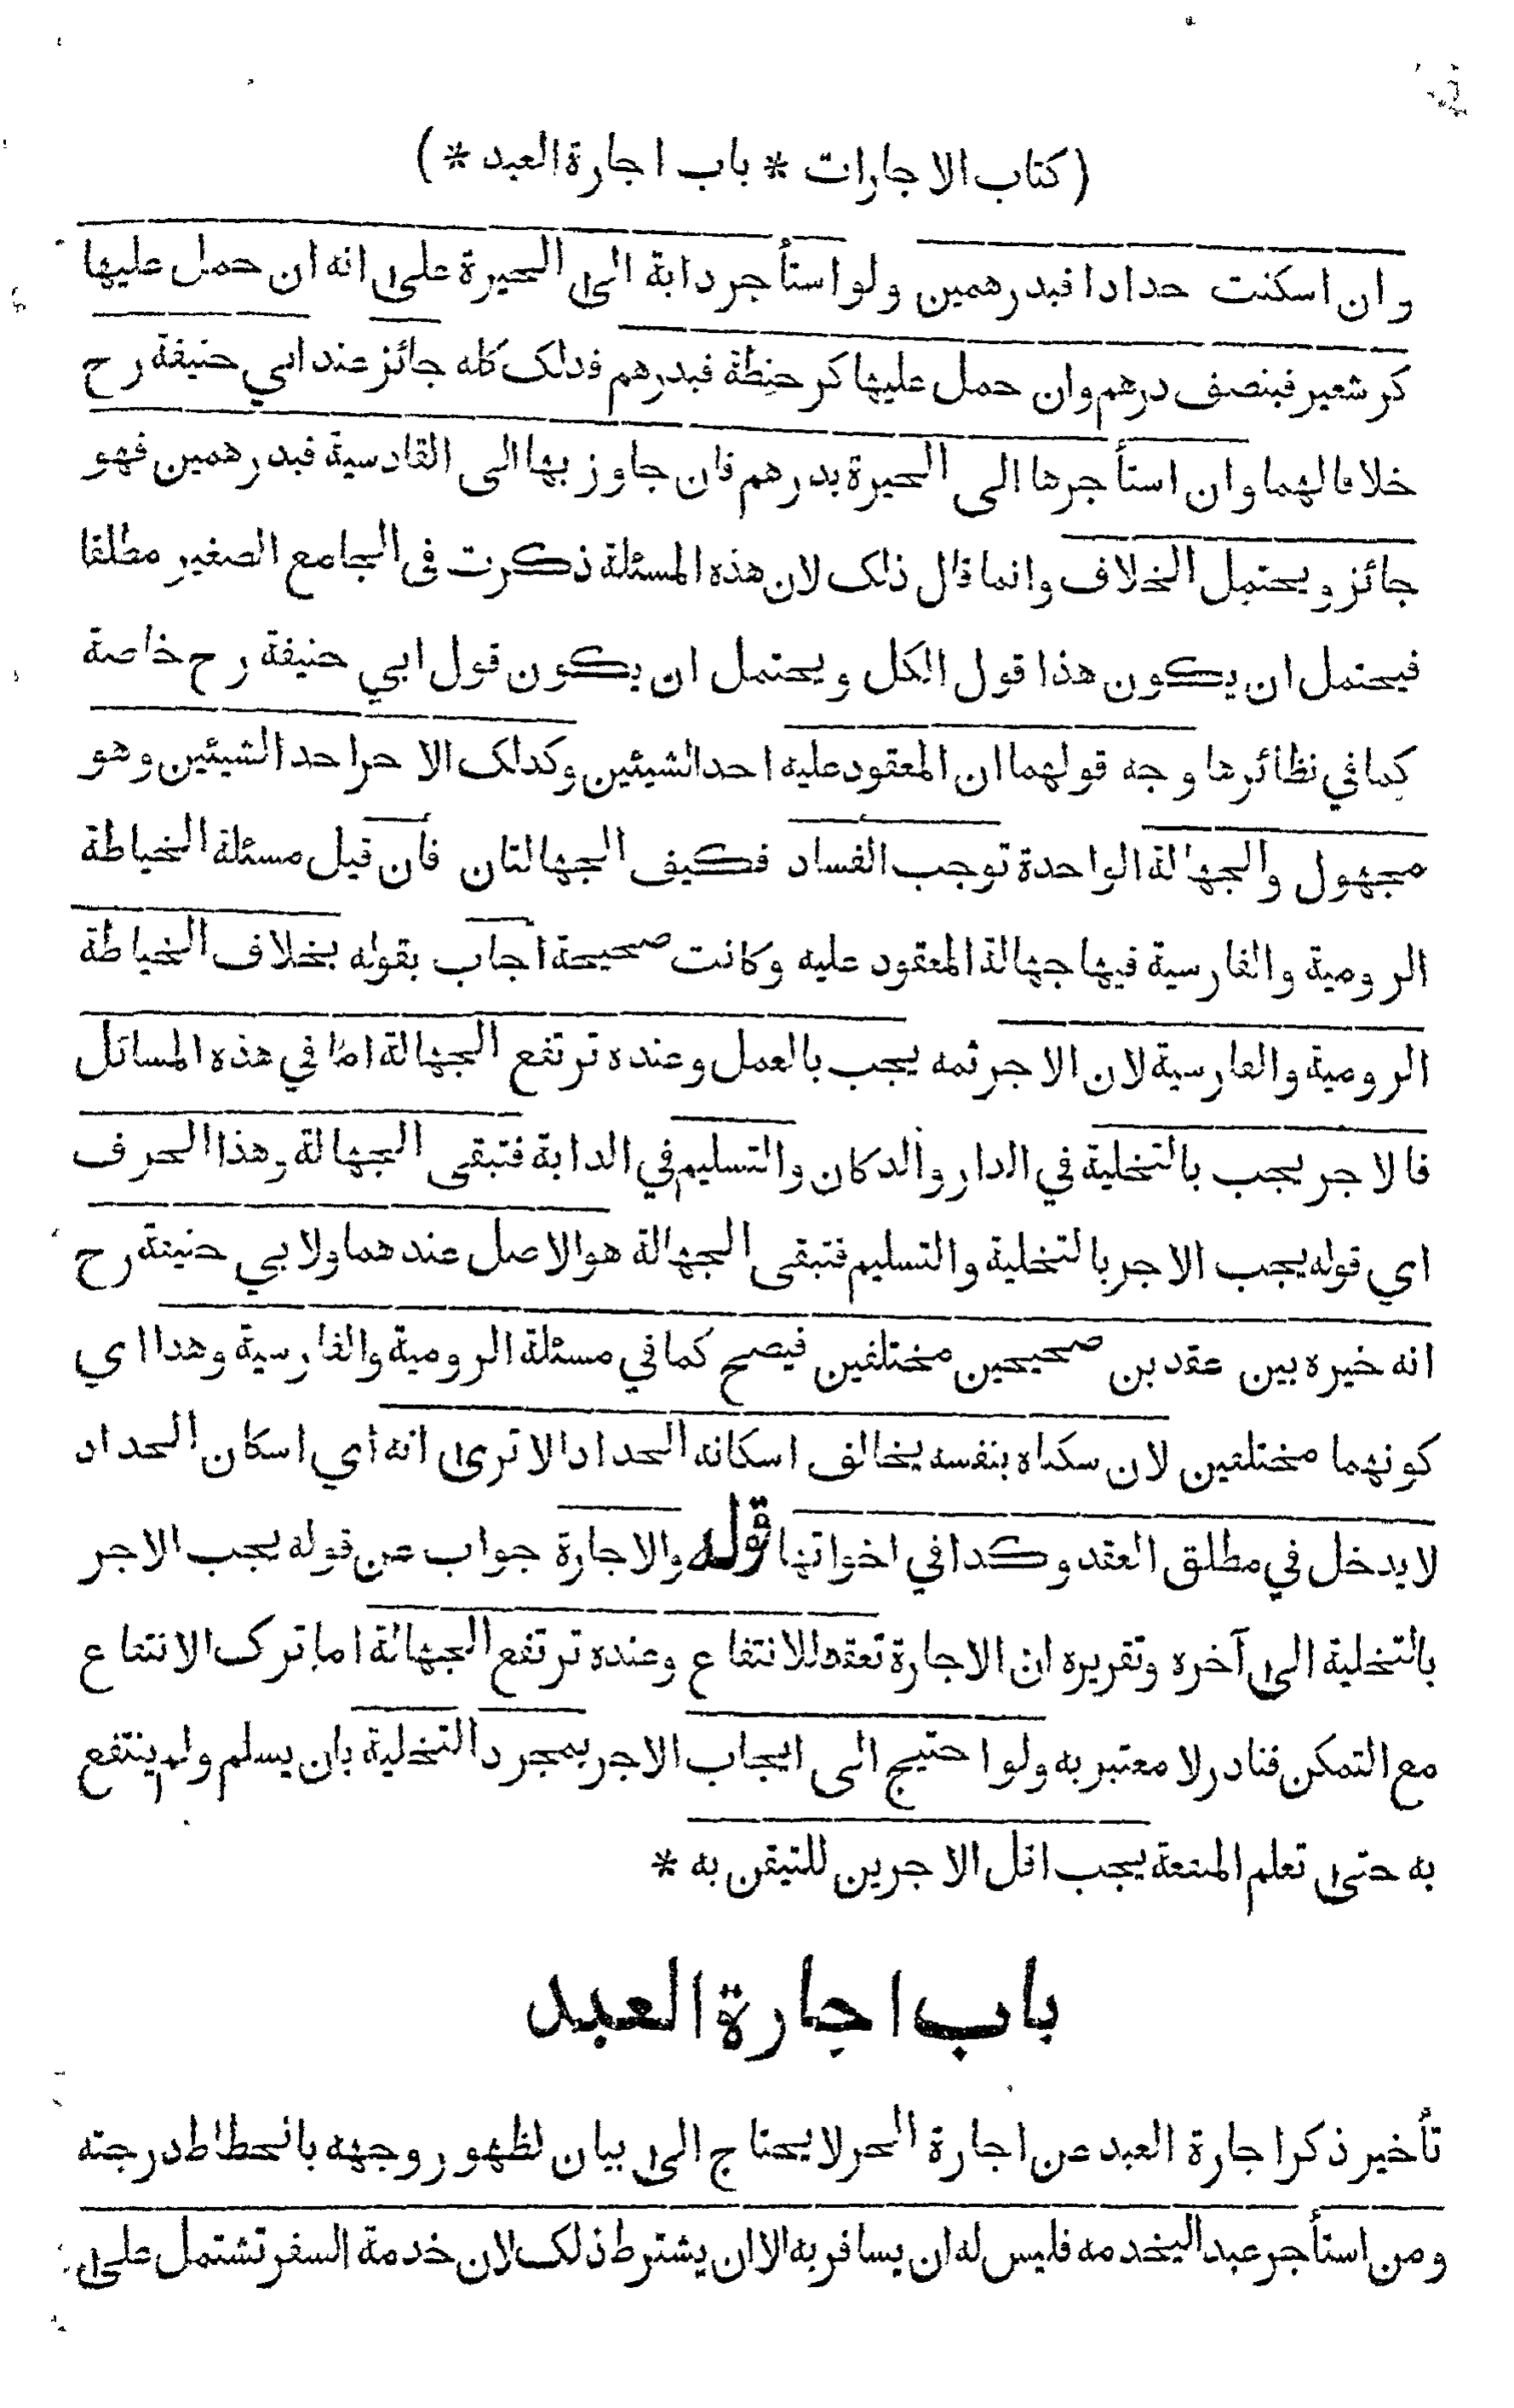 (كتاب الاجارات * باب اجارة العبد *)
وان اسكنت حدادا فبدرهمين ولو استأجر دابة الى الحيرة على انه ان حمل عليها
كر شعير فبنصف درهم وان حمل عليها كر حنطة فبدرهم فذلك كله جائز عند ابي حنيفة رح
خلافا لهما وان استأجرها الى الحيرة بدرهم فان جاوز بها الى القادسية فبدرهمين فهو
جائز ويحتمل الخلاف وانما قال ذلك لان هذه المسئلة ذكرت في الجامع الصغير مطلقا
فيحتمل ان يكون هذا قول الكل ويحتمل ان يكون قول ابي حنيفة رح خاصة
كما في نظائرها وجه قولهما ان المعقود عليه احد الشيئين وكذلك الاجر احد الشيئين وهو
مجهول والجهالة الواحدة توجب الفساد فكيف الجهالتان فأن قيل مسئلة الخياطة
الرومية والفارسية فيها جهالة المعقود عليه وكانت صحيحة اجاب بقوله بخلاف الخياطة
الرومية والفارسية لان الاجر ثمه يجب بالعمل وعنده ترتفع الجهالة اما في هذه المسائل
فالاجر يجب بالتخلية في الدار والدكان والتسليم في الدابة فتبقى الجهالة وهذا الحرف
اي قوله يجب الاجر بالتخلية والتسليم فتبقى الجهالة هو الاصل عندهما ولابي حنيفة رح
انه خيره بين عقدين صحيحين مختلفين فيصح كما في مسئلة الرومية والفارسية وهذا اي
كونهما مختلفين لان سكناه بنفسه يخالف اسكانه الحداد الا ترى انه اي اسكان الحداد
لا يدخل في مطلق العقد وكذا في اخواتها قوله والاجارة جواب عن قوله يجب الاجر
بالتخلية الى آخره وتقريره ان الاجارة تعقد للانتفاع وعنده ترتفع الجهالة اما ترك الانتفاع
مع التمكن فنادر لا معتبر به ولو احتيج الى ايجاب الاجر بمجرد التخلية بان يسلم ولم ينتفع
به حتى تعلم المنفعة يجب اقل الاجرين للتيقن به *
باب اجارة العبد
تأخير ذكر اجارة العبد عن اجارة الحر لا يحتاج الى بيان لظهور وجهه بانحطاط درجته
ومن استأجر عبدا ليخدمه فليس له ان يسافر به الا ان يشترط ذلك لان خدمة السفر تشتمل على